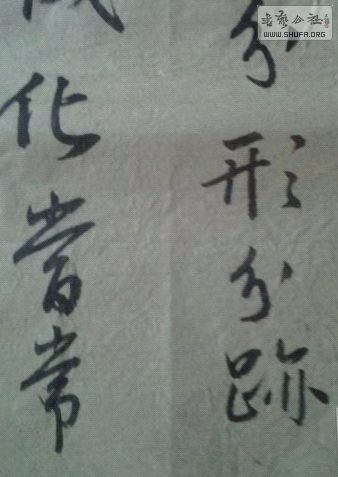 分形分跡
成化當常
书艺公社
WWW.SHUFA.ORG